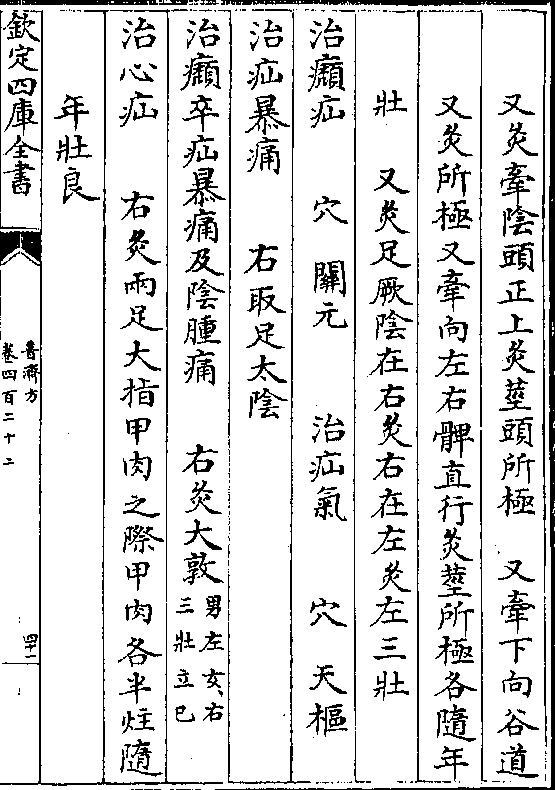 又灸牽陰頭正上灸莖頭所極　又牽下向谷道
又灸所極又牽向左右髀直行灸莖所極各隨年
壯　又灸足厥陰在右灸右在左灸左三壯
治㿗疝　穴　關元　治疝氣　穴　天樞
治疝暴痛　右取足太陰
治㿗卒疝暴痛及陰腫痛　右灸大敦男左女右三壯立已
治心疝　右灸兩足大指甲肉之際甲肉各半炷隨
年壯良
欽定四庫全書
普濟方
卷四百二十二
四十一